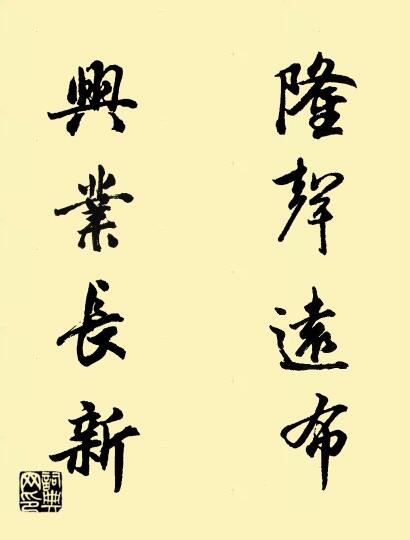 隆聲遠布
興業長新
詞典网印